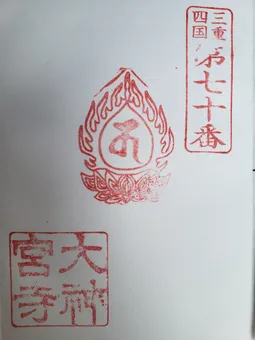 三重
四国
第七十番
大神
宮寺